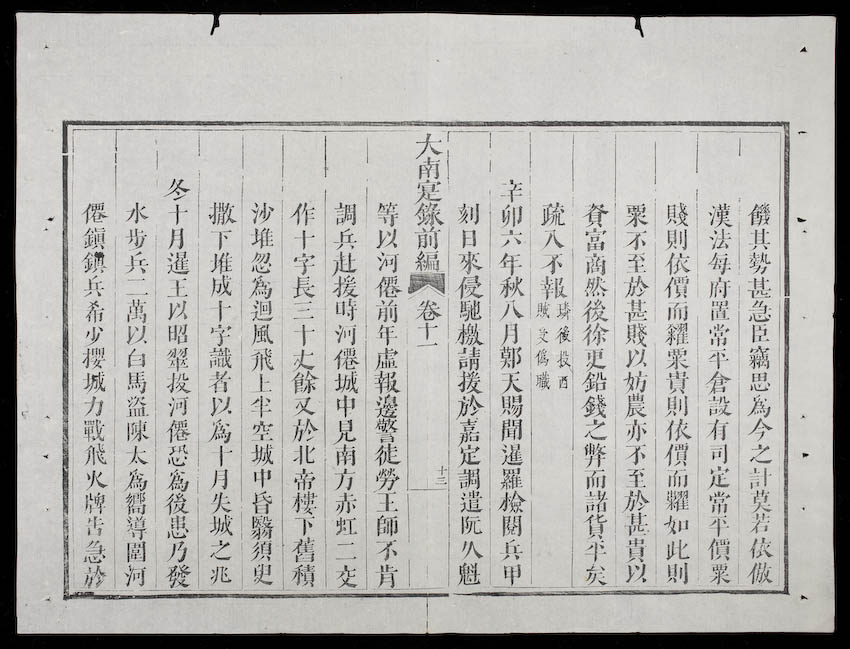 饑其勢甚急臣竊思爲今之計莫若依倣
漢法每府置常平倉設有司定常平價粟
賤則依價而糴粟貴則依價而糶如此則
粟不至於甚賤以妨農亦不至於甚貴以
資富商然後徐更鉛錢之弊而諸貨平矣
疏入不報璘後投西
賊受僞職
辛卯六年秋八月鄭天賜聞暹羅檢閱兵甲
刻日來侵馳檄請援於嘉定調遣阮久魁
大南寔錄前編 卷十一 十三
等以河僊前年虛報邊警徒勞王師不肯
調兵赴援時河僊城中見南方赤虹二交
作十字長三十丈餘又於北帝樓下舊積
沙堆忽爲迴風飛上半空城中昏翳須臾
撒下堆成十字識者以爲十月失城之兆
冬十月暹王以昭翠投河僊恐爲後患乃發
水步兵二萬以白馬盜陳太爲嚮導圍河
僊鎮鎮兵希少攖城力戰飛火牌告急於